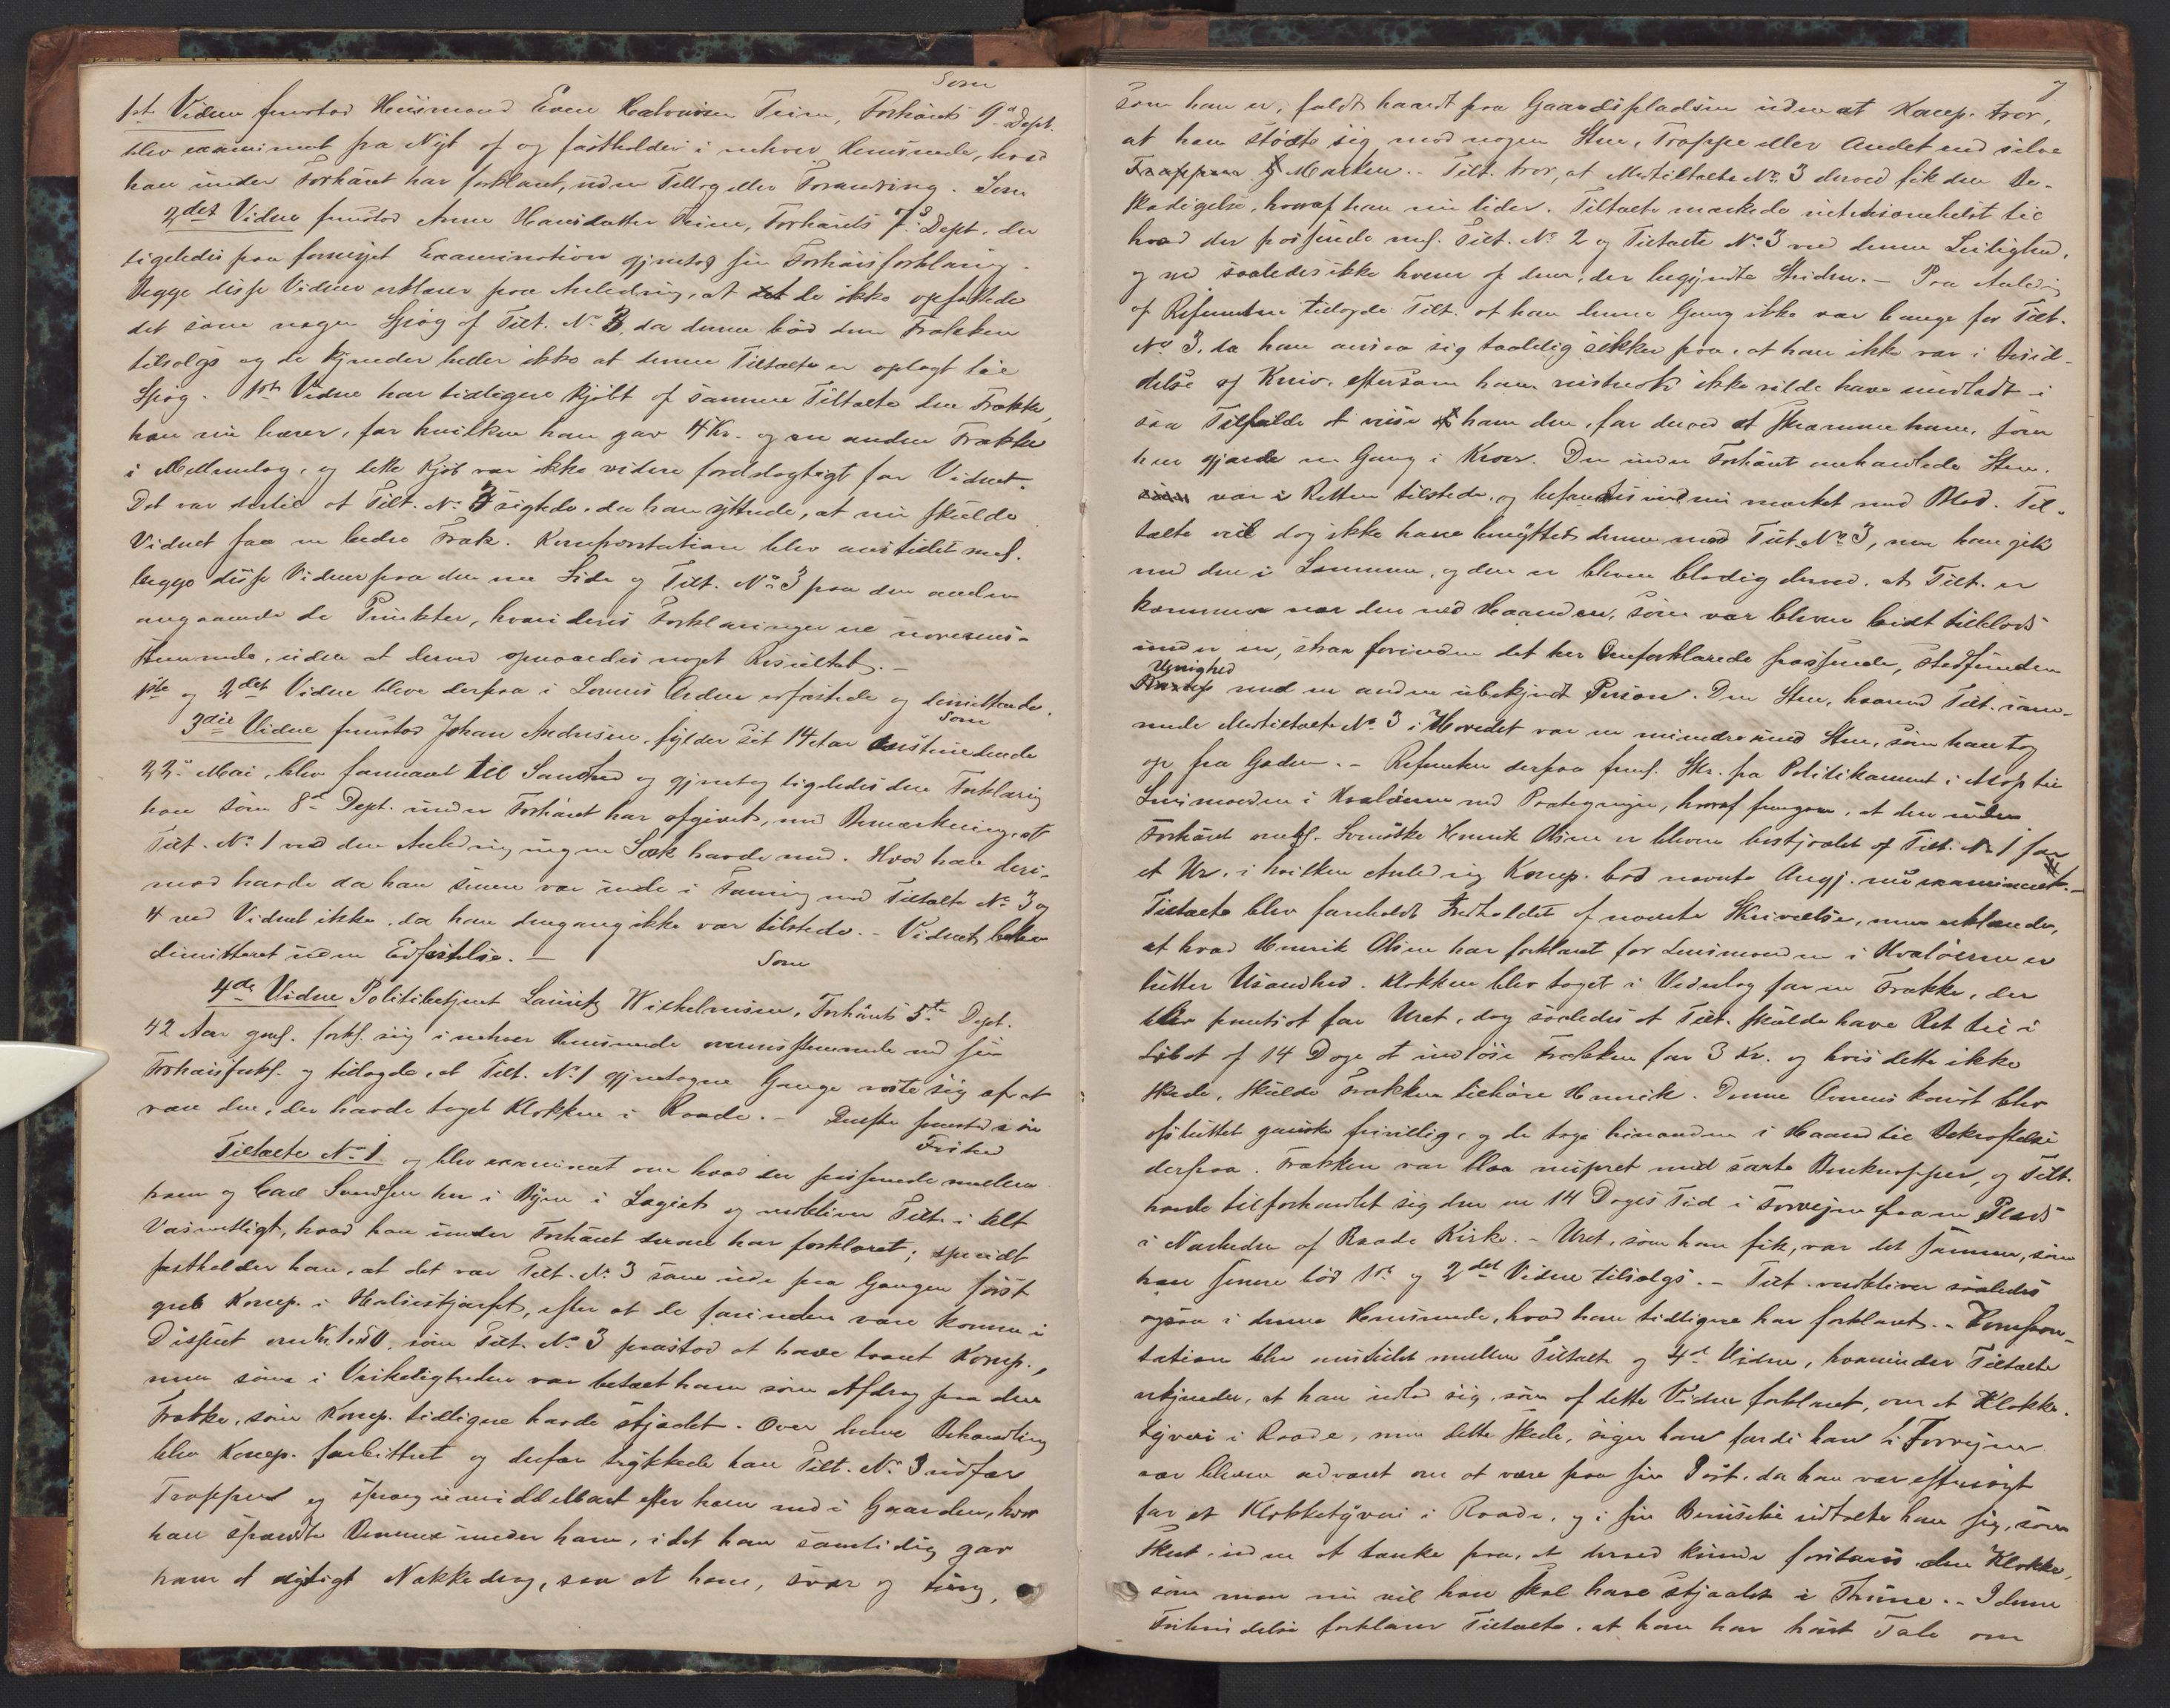 Som
1ste Vidne fremstod Huusmand Even Halvorsen Teien, Forhørets 9de Dept.
blev examineret fra Nyt af og fastholder i enhver Henseende, hvad
han under Forhøret har forklaret, uden Tillæg eller Forandring. Som
2det Vidne fremstod Anne Hansdatter Teien, Forhørets 7de Dept. der
ligeledes paa fornyet Examination gjentog sin Forhørsforklaring.
Begge disse Vidner erklærer paa Anledning, at de ikke opfattede
det som nogen Spøg af Tilt. No 3, da denne bød dem Frakken
tilsalgs og de kjender heller ikke at denne Tiltalte er oplagt til
Spøg. 1ste Vidne har tidligere kjøbt af samme Tiltalte den Frakke,
han nu bærer, for hvilken han gav 4 Kr. og en anden Frakke
i Mellemlag, og dette Kjøb var ikke videre fordelagtigt for Vidnet.
Det var dertil at Tilt. No 3 sigtede, da han yttrede, at nu skulde
Vidnet faa en bedre Frak. Konfrontation blev anstillet mell.
begge disse Vidner paa den ene Side og Tilt. No 3 paa den anden
angaaende de Punkter, hvori deres Forklaringer ere uoverens-
stemmende, uden at derved opnaaedes noget Resultat. -
1ste og 2det Vidne bleve derpaa i Lovens Orden edfæstede og dimitterede.
Som
3die Vidne fremstod Johan Andersen, fylder sit 14de Aar
22de Mai, blev formanet til Sandhed og gjentog ligeledes den Forklaring
han som 8de Dept. under Forhøret har afgivet, med Bemærkning, at
Tilt. No 1 ved den Anledning ingen Sæk havde med. Hvad han deri-
mod havde da han senere var inde i Taning med Tiltalte No 3 og
4 ved Vidnet ikke, da han dengang ikke var tilstede. - Vidnet blev
dimitteret uden Edfæstelse. -
Som
4de Vidne Politibetjent Lauritz Wilhelmsen, Forhørets 5te Dept.
42 Aar gml. forkl. sig i enhver Henseende overensstemmende med sin
Forhørsforkl. og tilagde, at Tilt. No 1 gjentagne Gange roste sig af at
være den, der havde taget Klokken i Raade. - Derefter fremstod i sin
Frihed
Tiltalte No 1 og blev examineret om hvad der passerede mellem
ham og Carl Svendsen her i Byen i Logiet og vedbliver Tilt. i Alt
Væsentligt, hvad han under Forhøret derom har forklaret; specielt
fastholder han, at det var Tilt. No 3 som ude paa Gangen først
greb Komp. i Halstørklædet, efter at de forinden vare komne i
Disput om som Tilt. No 3 paastod at have laant Komp.,
men som i Virkeligheden var betalt ham som Afdrag paa den
Frakke, som Komp. tidligere havde stjaalet. Over denne Behandling
blev Komp. forbittret og derfor trykkede han Tilt. No 3 udfor
Trappen og sprang umiddelbart efter ham ned i Gaarden, hvor
han spændte Benene under ham, idet han samtidig gav
ham et dygtigt Nakkedrag, saa at han, svær og tung,
7
som han er, faldt haardt paa Gaardspladsen uden at Komp. tror,
at han stødte sig mod nogen Sten, Trappe eller Andet end selve
Marken. - Tilt. tror, at Medtiltalte No 3 derved fik den Be-
skadigelse, hvoraf han nu lider. Tiltalte mærkede intetsomhelst til
hvad der passerede mell. Tilt. No 2 og Tiltalte No 3 ved denne Leilighed,
og ved saaledes ikke hvem af dem, der begyndte Striden. - Paa Anledning
af Referenten tilagde Tilt. at han denne Gang ikke var bange for Tilt.
No 3, da han ansaa sig taalelig sikker paa, at han ikke var i Besid-
delse af Kniv, eftersom han vistnok ikke vilde have undladt i
saa Tilfælde at vise ham den, for derved at skræmme ham, som
han gjorde en Gang i Kroer. Den under Forhøret omhandlede Sten
var i Retten tilstede, og befandtes ved nu mærket med Blod. Til-
talte vil dog ikke have benyttet denne mod Tilt. No 3, men han gik
med den i Lommen, og den er bleven blodig derved, at Tilt. er
kommen nær den ved Haanden, som var bleven bidt tilblods
under en, strax forinden det her Omforklarede passerede, stedfunden
Uenighed
med en anden ubekjendt Person. Den Sten, hvormed Tilt. ram-
mede Medtiltalte No 3 i Hovedet var en mindre rund Sten, som han tog
op fra Gaden. - Referenten derpaa freml. Skr. fra Politikammeret i Moss til
Lensmanden i Hvaløerne med Paategning, hvoraf fremgaar, at den under
Forhøret omhl. Svenske Henrik Olsen er bleven bestjaalet af Tilt. No 1 for
et Ur, i hvilken Anledning Komp. bad nævnte Angj. nu examineret. -
Tiltalte blev foreholdt Indholdet af nævnte Skrivelse, men erklærede,
at hvad Henrik Olsen har forklaret for Lensmanden i Hvaløerne er
lutter Usandhed. Klokken blev taget i Vederlag for en Frakke, der
blev pantsat for Uret, dog saaledes at Tilt. skulde have Ret til i
Løbet af 14 Dage at indløse Frakken for 3 Kr. og hvis dette ikke
skede, skulde Frakken tilhøre Henrik. Denne Overenskomst blev
afsluttet ganske frivillig, og de toge hinanden i Haand til Bekræftelse
derpaa. Frakken var blaa nupret med sorte Benknapper, og Tilt.
havde tilforhandlet sig den en 14 Dages Tid i Forveien fra en Plads
i Nærheden af Raade Kirke. - Uret, som han fik, var det samme, som
han senere bød 1ste og 2det Vidne tilsalgs. - Tilt. vedbliver saaledes
ogsaa i denne Henseende, hvad han tidligere har forklaret. - Konfron-
tation blev anstillet mellem Tiltalte og 4de Vidne, hvorunder Tiltalte
erkjender, at han udlod sig, som af dette Vidne forklaret, om et Klokke-
tyveri i Raade, men dette skede, siger han fordi han i Forveien
var bleven advaret om at være paa sin Post, da han var eftersøgt
for et Klokketyveri i Raade, og i sin Beruselse udtalte han sig, som
skeet, uden at tænke paa, at derved kunde forstaaes den Klokke,
som man nu vil han skal have stjaalet i Thune. - I denne
Forbindelse forklarer Tiltalte, at han har hørt Tale om